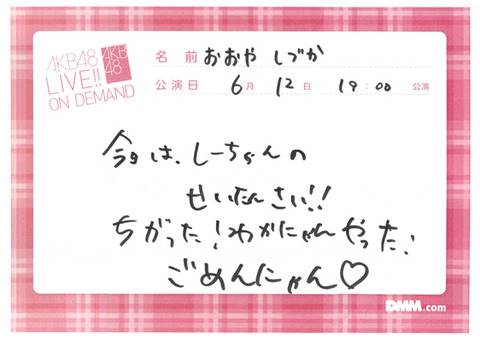 AKB48
LIVE!!
ON DEMAND
AKB
48
名前 おおや しづか
公演日 6月 12日 19:00 公演
今日は、しーちゃんの
せいたんさい!!
ちがった!わかにゃんやった!
ごめんにゃん♡
DMM.com